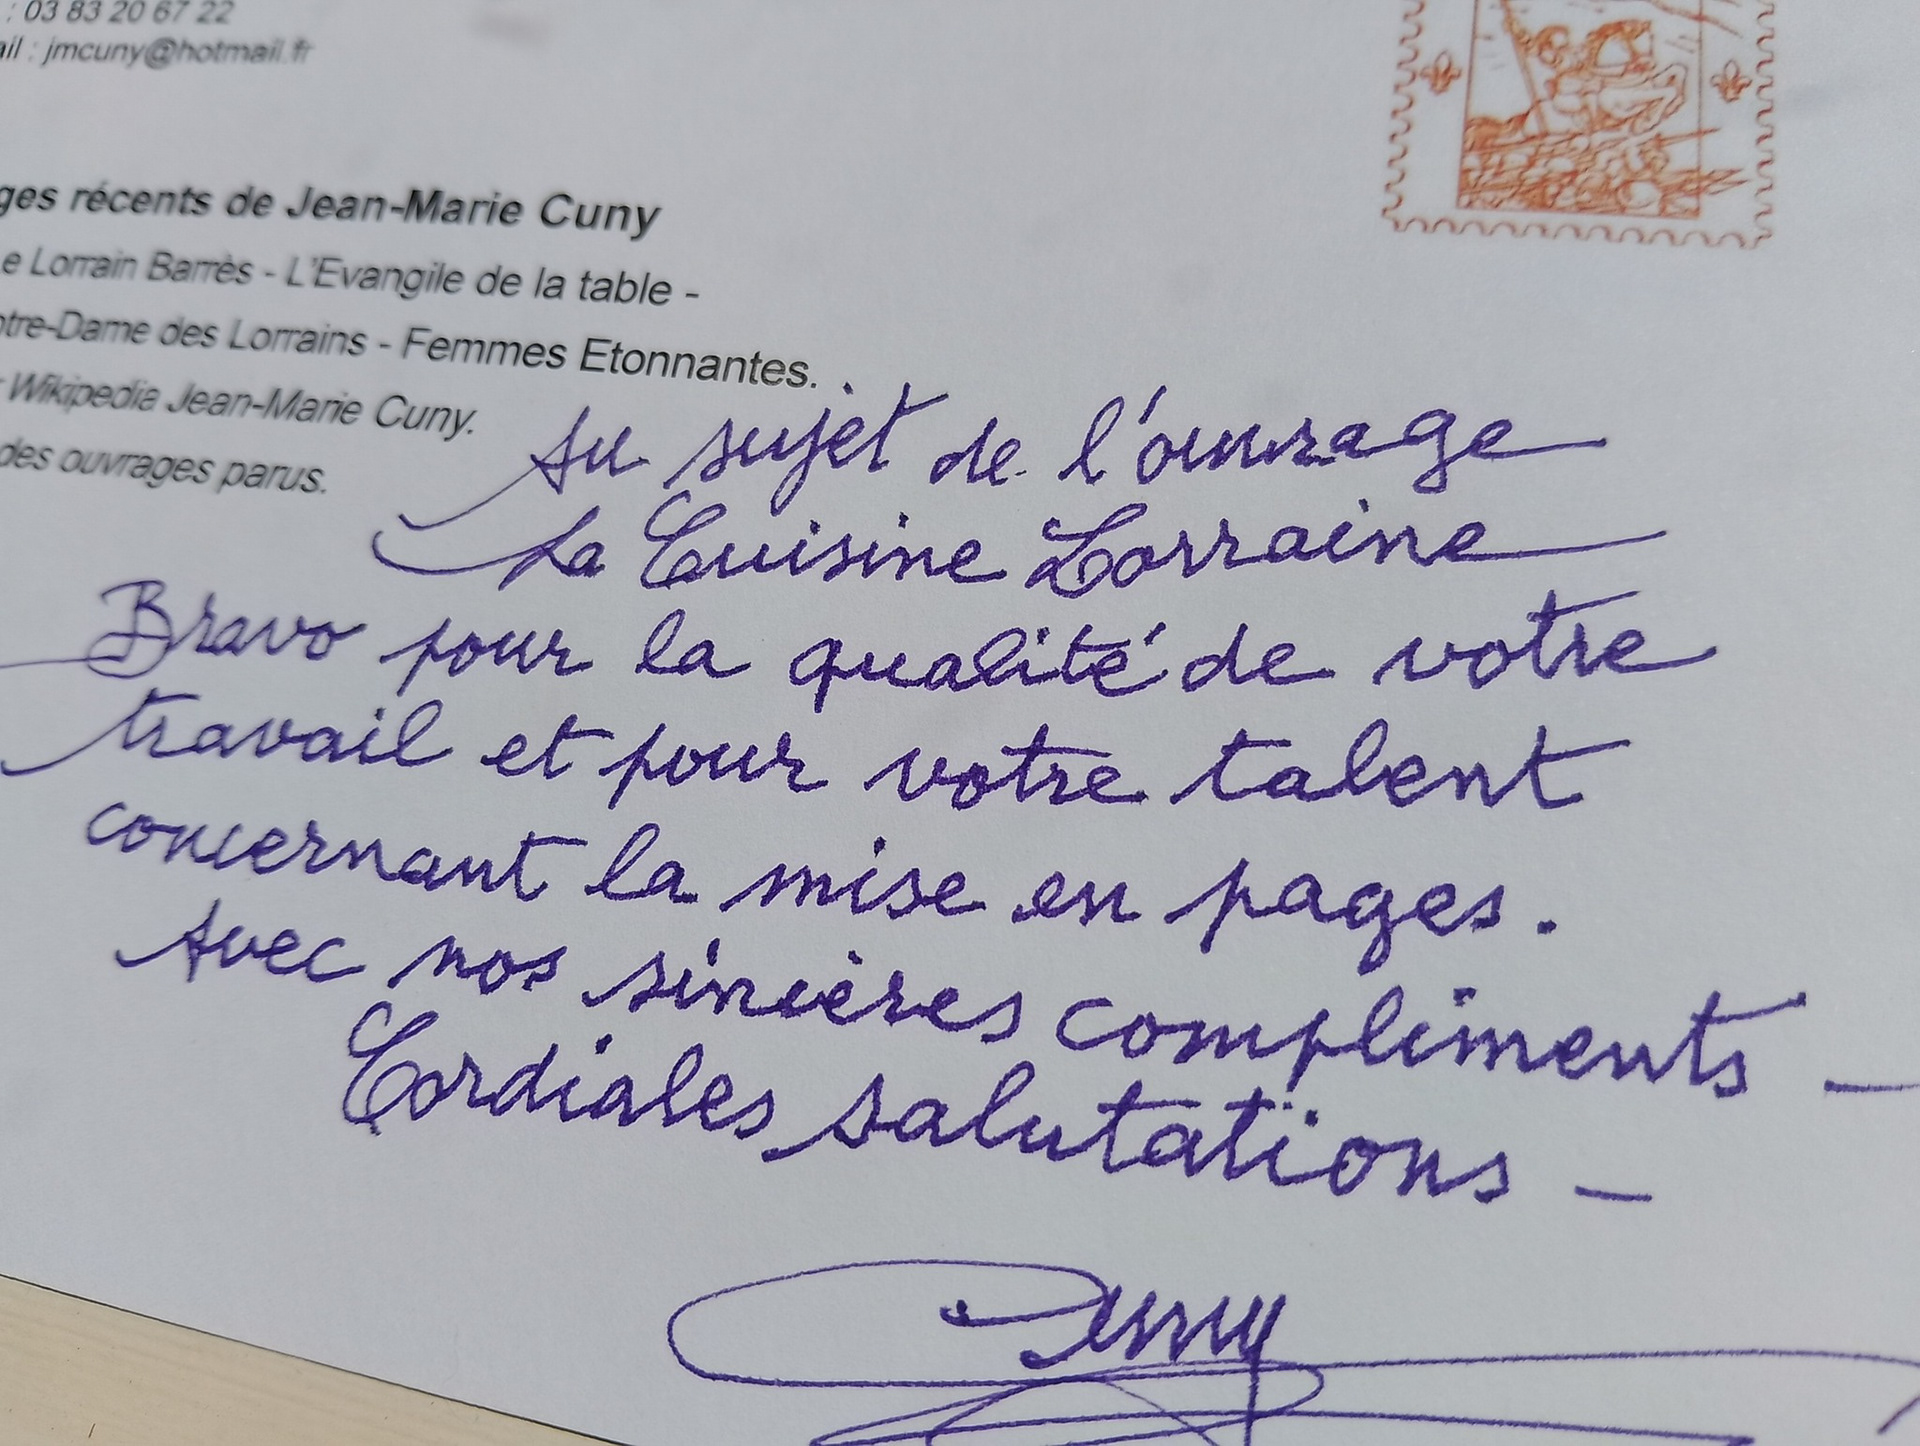 : 03 83 20 67 22
ail : jmcuny@hotmail.fr
ges récents de Jean-Marie Cuny
e Lorrain Barrès - L'Evangile de la table -
otre-Dame des Lorrains - Femmes Etonnantes.
Wikipedia Jean-Marie Cuny.
des ouvrages parus.
Au sujet de l'ouvrage
La Cuisine Lorraine
Bravo pour la qualité de votre
travail et pour votre talent
concernant la mise en pages.
Avec nos sincères compliments -
Cordiales salutations -
Cuny